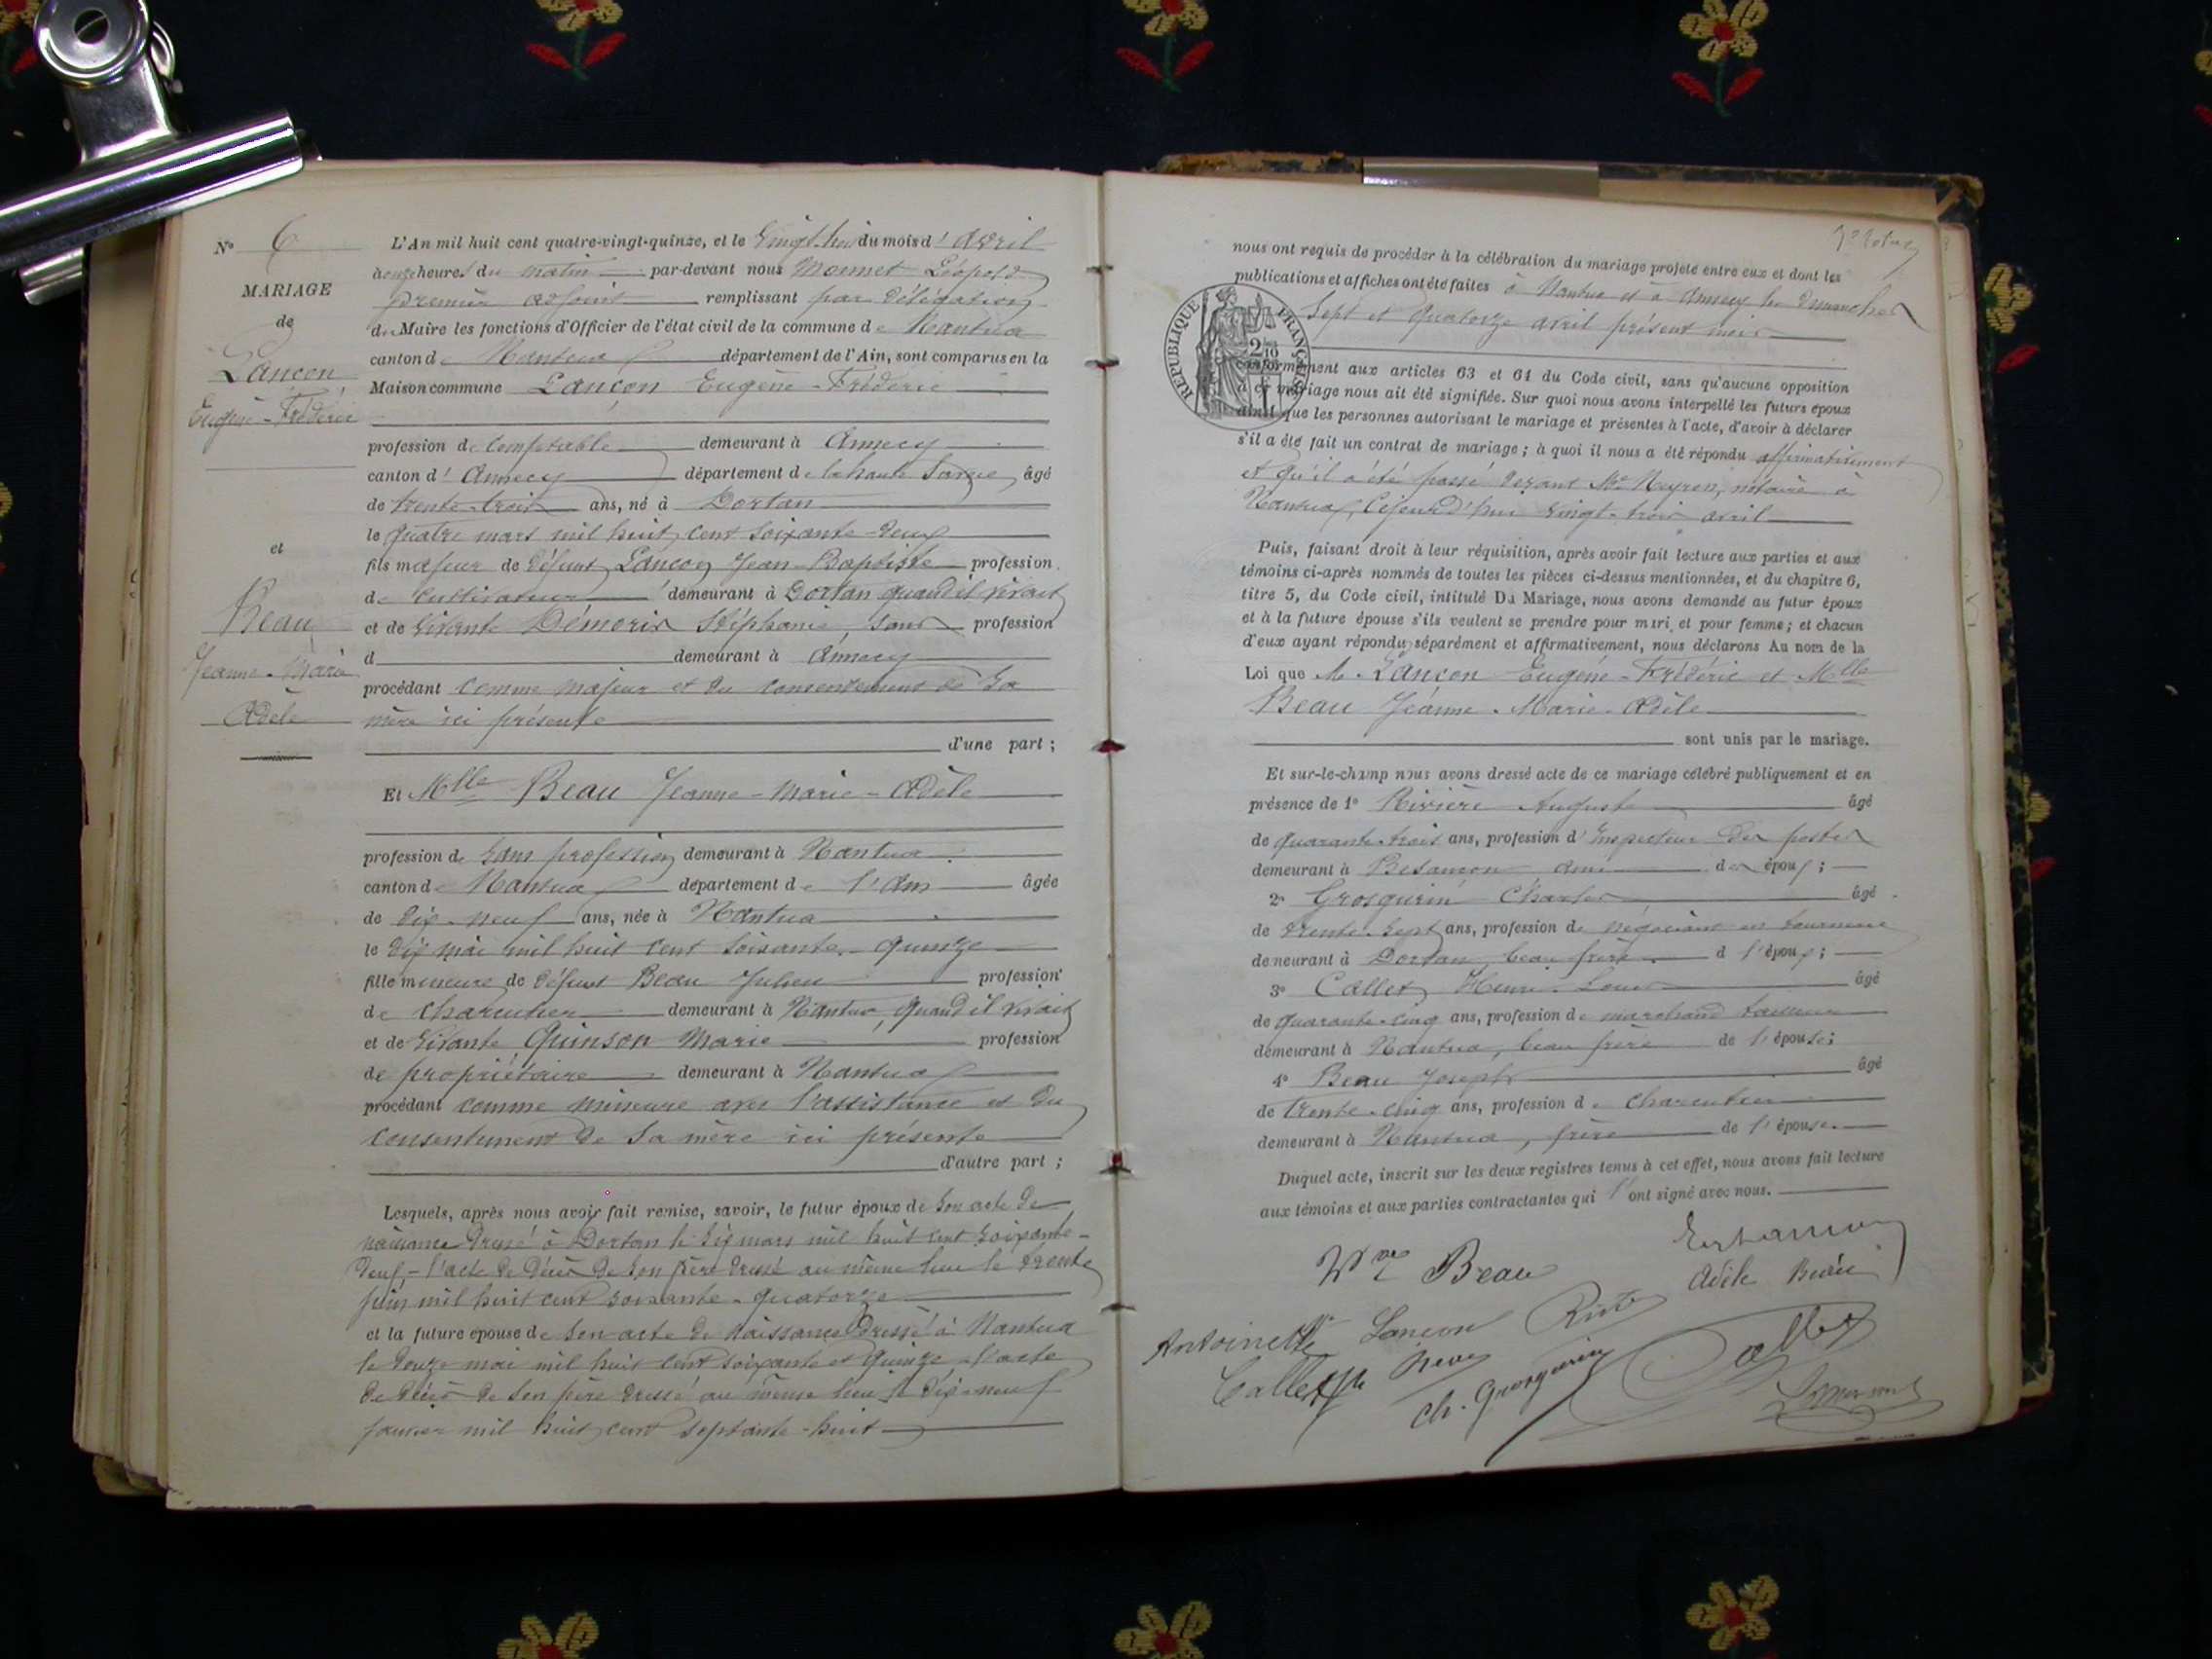 N° 6
MARIAGE
de
Lançon
Eugène-Frédéric
et
Beau
Jeanne-Marie
Adèle
L'An mil huit cent quatre-vingt-quinze, et le Vingt-trois du mois d'avril
à onze heures du matin par-devant nous Léopold
premier adjoint remplissant par délégation
du Maire les fonctions d'Officier de l'état civil de la commune de Nantua
canton de Nantua département de l'Ain, sont comparus en la
Maison commune Lançon Eugène-Frédéric
profession de comptable demeurant à Annecy
canton d'Annecy département de la haute Savoie, âgé
de trente-trois ans, né à Dortan
le quatre mars mil huit cent soixante-deux
fils majeur de défunt Lançon Jean-Baptiste profession
de cultivateur demeurant à Dortan quand il vivait
et de vivante Démoris Stéphanie, sans profession
d demeurant à Annecy
procédant comme majeur et du consentement de sa
mère ici présente
d'une part ;
Et Mlle Beau Jeanne-Marie-Adèle
profession de sans profession demeurant à Nantua
canton de Nantua département de l'Ain âgée
de dix-neuf ans, née à Nantua
le dix mai mil huit cent soixante-quinze
fille mineure de défunt Beau Julien profession
de charcutier demeurant à Nantua, quand il vivait
et de vivante Quinson Marie profession
de propriétaire demeurant à Nantua
procédant comme mineure avec l'assistance et du
consentement de sa mère ici présente
d'autre part ;
Lesquels, après nous avoir fait remise, savoir, le futur époux de son acte de
naissance dressé à Dortan le six mars mil huit cent soixante-
deux, - l'acte de décès de son père dressé au même lieu le trente
juin mil huit cent soixante-quatorze
et la future épouse de son acte de naissance dressé à Nantua
le douze mai mil huit cent soixante et quinze - l'acte
de décès de son père dressé au même lieu le dix-neuf
janvier mil huit cent septante-huit
nous ont requis de procéder à la célébration du mariage projeté entre eux et dont les
publications et affiches ont été faites à Nantua et à Annecy les dimanches
Sept et Quatorze avril présent mois
RÉPUBLIQUE FRANÇAISE
conformément aux articles 63 et 64 du Code civil, sans qu'aucune opposition
à ce mariage nous ait été signifiée. Sur quoi nous avons interpellé les futurs époux
ainsi que les personnes autorisant le mariage et présentes à l'acte, d'avoir à déclarer
s'il a été fait un contrat de mariage ; à quoi il nous a été répondu affirmativement
et qu'il a été passé devant Me Neyron, notaire à
Nantua, cejourd'hui vingt-trois avril
Puis, faisant droit à leur réquisition, après avoir fait lecture aux parties et aux
témoins ci-après nommés de toutes les pièces ci-dessus mentionnées, et du chapitre 6,
titre 5, du Code civil, intitulé Du Mariage, nous avons demandé au futur époux
et à la future épouse s'ils veulent se prendre pour mari et pour femme ; et chacun
d'eux ayant répondu séparément et affirmativement, nous déclarons Au nom de la
Loi que M. Lançon Eugène-Frédéric et Mlle
Beau Jeanne-Marie-Adèle
sont unis par le mariage.
Et sur-le-champ nous avons dressé acte de ce mariage célébré publiquement et en
présence de 1° Rivière Auguste âgé
de quarante-trois ans, profession d'inspecteur des postes
demeurant à Besançon ami des époux ;
2° Grosgurin Charles âgé
de trente-sept ans, profession de négociant en tournerie
demeurant à Dortan, beau frère d l'époux ;
3° Callet Henri-Louis âgé
de quarante-cinq ans, profession de marchand tailleur
demeurant à Nantua, beau frère de l'épouse ;
4° Beau Joseph âgé
de trente-cinq ans, profession de charcutier
demeurant à Nantua, frère de l'épouse.
Duquel acte, inscrit sur les deux registres tenus à cet effet, nous avons fait lecture
aux témoins et aux parties contractantes qui l'ont signé avec nous.
Vve Beau
Adèle Beau
Antoinette Lançon
Callet
Ch. Grosgurin
Callet